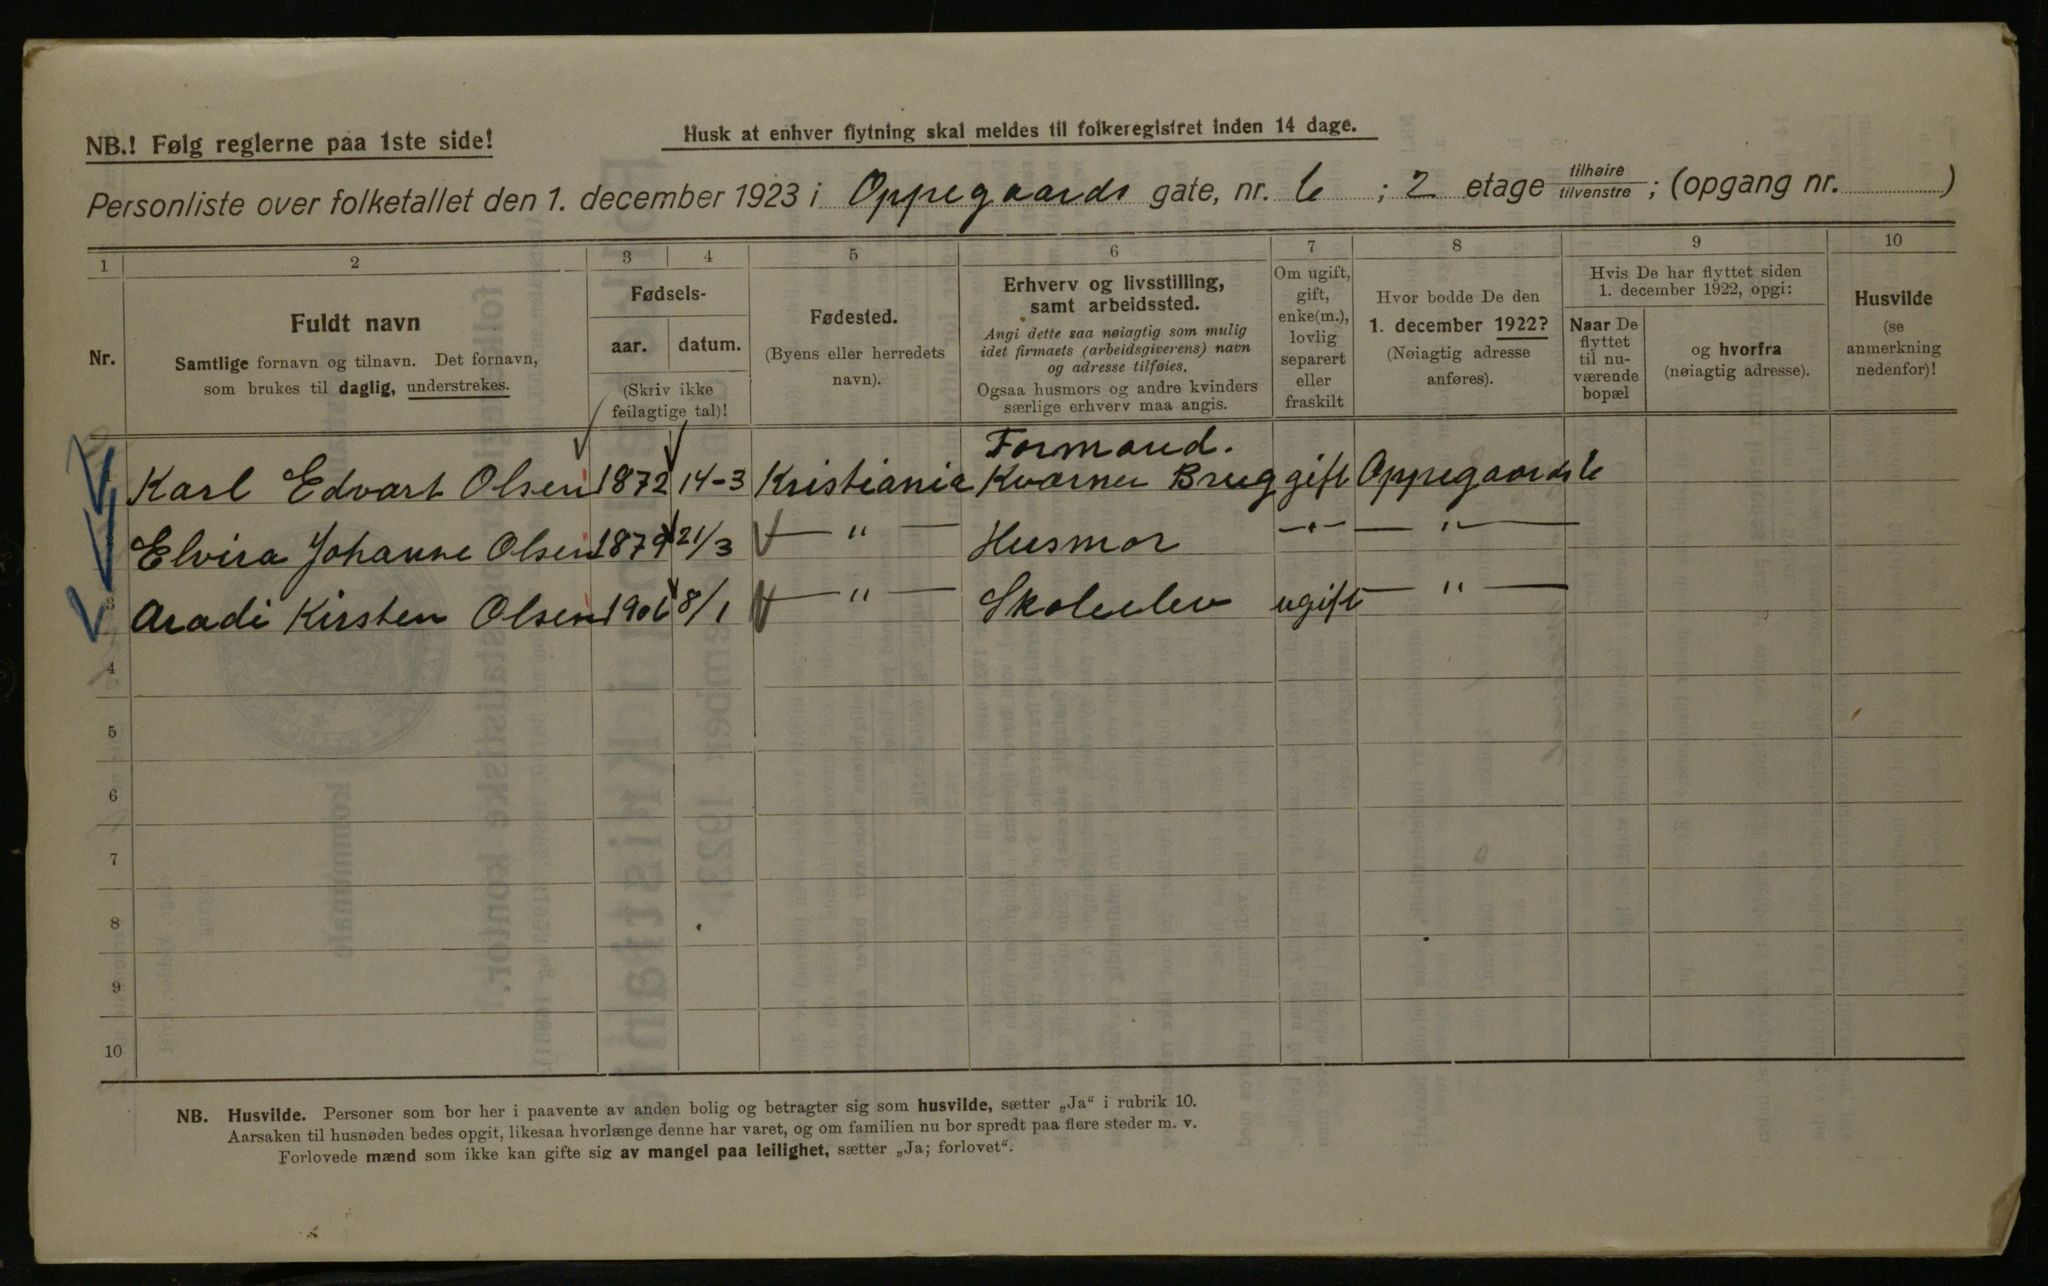 NB.! Følg reglerne paa 1ste side!
Husk at enhver flytning skal meldes til folkeregistret inden 14 dage.
Personliste over folketallet den 1. december 1923 i Oppegaards gate, nr. 6 ; 2 etage tilhøire tilvenstre ; (opgang nr. )
1 2 3 4 5 6 7 8 9 10
Nr.
Fuldt navn
Samtlige fornavn og tilnavn. Det fornavn,
som brukes til daglig, understrekes.
Fødsels-
aar. datum.
(Skriv ikke
feilagtige tal)!
Fødested.
(Byens eller herredets
navn).
Erhverv og livsstilling,
samt arbeidssted.
Angi dette saa nøiagtig som mulig
idet firmaets (arbeidsgiverens) navn
og adresse tilføies.
Ogsaa husmors og andre kvinders
særlige erhverv maa angis.
Om ugift,
gift,
enke(m.),
lovlig
separert
eller
fraskilt
Hvor bodde De den
1. december 1922?
(Nøiagtig adresse
anføres).
Hvis De har flyttet siden
1. december 1922, opgi:
Naar De
flyttet
til nu-
værende
bopæl
og hvorfra
(nøiagtig adresse).
Husvilde
(se
anmerkning
nedenfor)!
Formand.
Karl Edvart Olsen 1872 14-3 Kristiania Kværner Brug gift Oppegaards 6
Elvira Johanne Olsen 1879 21/3 — " — Husmor — " — — " —
3 Aradi Kirsten Olsen 1906 8/1 — " — Skoleelev ugift — " —
4
5
6
7
8
9
10
NB. Husvilde. Personer som bor her i paavente av anden bolig og betragter sig som husvilde, sætter „Ja“ i rubrik 10.
Aarsaken til husnøden bedes opgit, likesaa hvorlænge denne har varet, og om familien nu bor spredt paa flere steder m. v.
Forlovede mænd som ikke kan gifte sig av mangel paa leilighet, sætter „Ja; forlovet“.